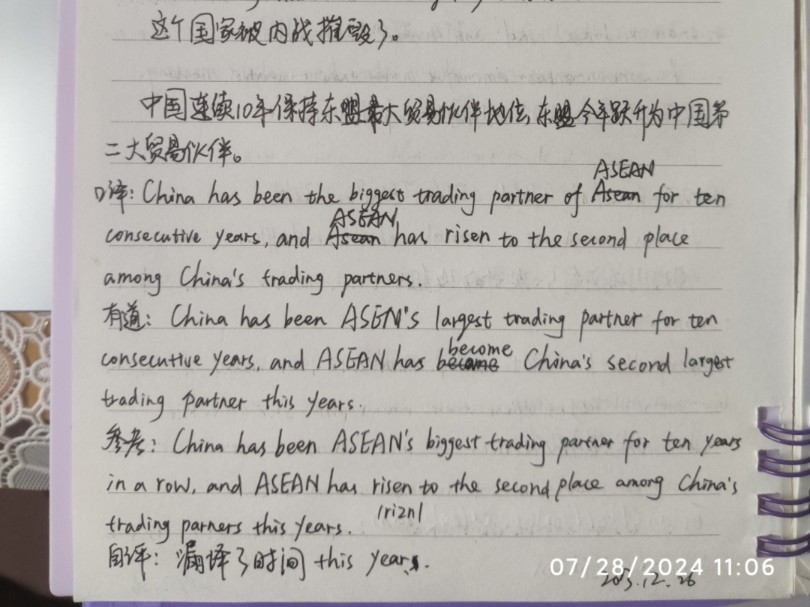 这个国家被内战摧毁了。
中国连续10年保持东盟最大贸易伙伴地位,东盟今年跃升为中国第
二大贸易伙伴。
ASEAN
口译: China has been the biggest trading partner of Asean for ten
ASEAN
consecutive years, and Asean has risen to the second place
among China's trading partners.
有道: China has been ASEN'S largest trading partner for ten
become
consecutive years, and ASEAN has became China's second largest
trading partner this years.
参考: China has been ASEAN's biggest trading partner for ten years
in a row, and ASEAN has risen to the second place among China's
/rizn/
trading parners this years.
自评: 漏译了时间 this year.
07/28/2024 11:06